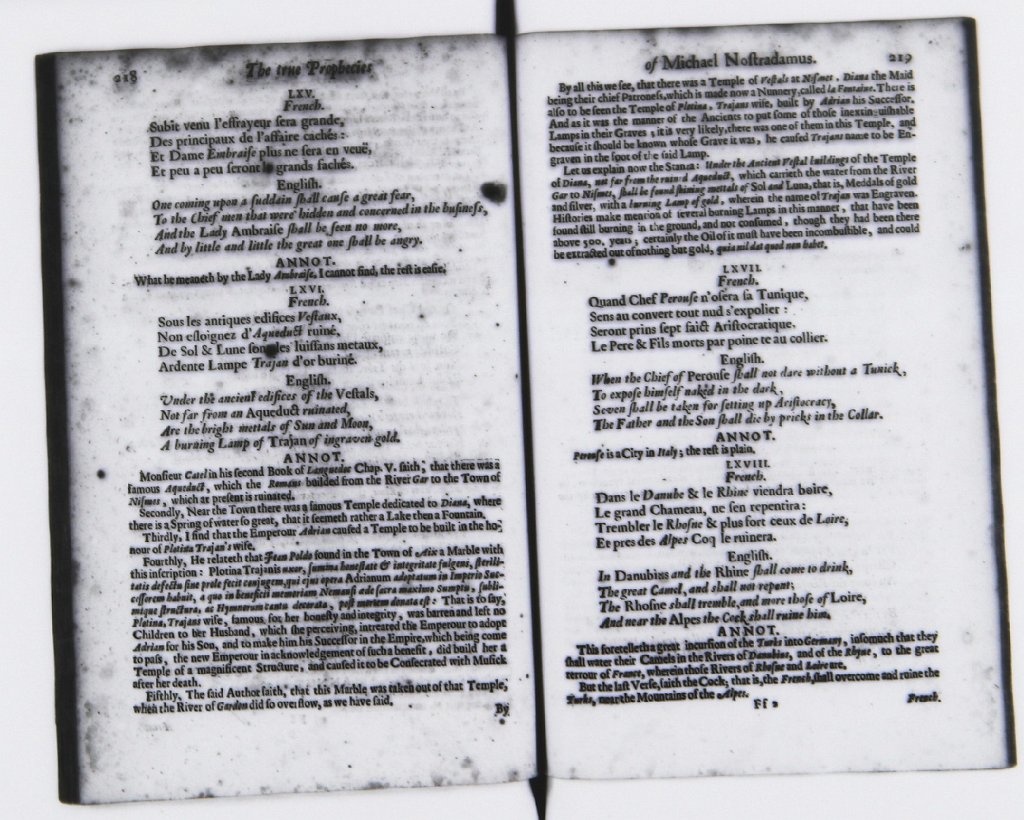 218
The true Prophecies
LXV.
French.
Subit venu l'effrayeur sera grande,
Des principaux de l'affaire cachés:
Et Dame Embraise plus ne sera en veuë,
Et peu a peu seront les grands fachés.
English.
One coming upon a suddain shall cause a great fear,
To the Chief men that were hidden and concerned in the business,
And the Lady Ambraise shall be seen no more,
And by little and little the great one shall be angry.
ANNOT.
What he meaneth by the Lady Ambraise, I cannot find, the rest is easie.
LXVI.
French.
Sous les antiques edifices Vestaux,
Non esloignez d'Aqueduct ruiné,
De Sol & Lune sont les luisans metaux,
Ardente Lampe Trajan d'or buriné.
English.
Under the ancient edifices of the Vestals,
Not far from an Aqueduct ruinated,
Are the bright mettals of Sun and Moon,
A burning Lamp of Trajan of ingraven gold.
ANNOT.
Monsieur Catel in his second Book of Languedoc Chap. V. saith, that there was a
famous Aqueduct, which the Romans builded from the River Gar to the Town of
Nismes, which at present is ruinated.
Secondly, Near the Town there was a famous Temple dedicated to Diana, where
there is a Spring of water so great, that it seemeth rather a Lake then a Fountain.
Thirdly, I find that the Emperour Adrian caused a Temple to be built in the ho-
nour of Platina Trajan's wife.
Fourthly, He relateth that Jean Poldo found in the Town of Aix a Marble with
this inscription: Plotina Trajanis uxor, summa honestate & integritate fulgens, sterili-
tatis defectu sine prole fecit conjugem, qui ejus opera Adrianum adoptatum in Imperio Suc-
cessorem habuit, a quo in beneficii memoriam Nemausi æde sacra maximo Sumptu, subli-
mique structura, ac Hymnorum tantu decorata, post mortem donata est: That is to say,
Platina, Trajans wife, famous for her honesty and integrity, was barren and left no
Children to her Husband, which she perceiving, intreated the Emperour to adopt
Adrian for his Son, and to make him his Successor in the Empire, which being come
to pass, the new Emperour in acknowledgement of such a benefit, did build her a
Temple of a magnificent Structure, and caused it to be Consecrated with Musick
after her death.
Fifthly, The said Author saith, that this Marble was taken out of that Temple,
when the River of Gardon did so overflow, as we have said.
By
of Michael Nostradamus.
219
By all this we see, that there was a Temple of Vestals at Nismes, Diana the Maid
being their chief Patroness, which is made now a Nunnery, called la Fontaine. There is
also to be seen the Temple of Platina, Trajans wife, built by Adrian his Successor.
And as it was the manner of the Ancients to put some of those inextinguishable
Lamps in their Graves; it is very likely, there was one of them in this Temple, and
because it should be known whose Grave it was, he caused Trajans name to be En-
graven in the foot of the said Lamp.
Let us explain now the Stanza: Under the Ancient Vestal buildings of the Temple
of Diana, not far from the ruined Aqueduct, which carrieth the water from the River
Gar to Nismes, shall be found shining mettals of Sol and Luna, that is, Meddals of gold
and silver, with a burning Lamp of gold, wherein the name of Trajan was Engraven.
Histories make mention of several burning Lamps in this manner, that have been
found still burning in the ground, and not consumed, though they had been there
above 500. years; certainly the Oil of it must have been incombustible, and could
be extracted out of nothing but gold, quia nil dat quod non habet.
LXVII.
French.
Quand Chef Perouse n'osera sa Tunique,
Sens au convert tout nud s'expolier:
Seront prins sept faict Aristocratique,
Le Pere & Fils morts par poincte au collier.
English.
When the Chief of Perouse shall not dare without a Tunick,
To expose himself naked in the dark,
Seven shall be taken for setting up Aristocracy,
The Father and the Son shall die by pricks in the Collar.
ANNOT.
Perouse is a City in Italy; the rest is plain.
LXVIII.
French.
Dans le Danube & le Rhine viendra boire,
Le grand Chameau, ne sen repentira:
Trembler le Rhosne & plus fort ceux de Loire,
Et pres des Alpes Coq le ruinera.
English.
In Danubius and the Rhine shall come to drink,
The great Camel, and shall not repent;
The Rhosne shall tremble, and more those of Loire,
And near the Alpes the Cock shall ruine him.
ANNOT.
This foretelleth a great incursion of the Turks into Germany, insomuch that they
shall water their Camels in the Rivers of Danubius, and of the Rhyne, to the great
terrour of France, wherein those Rivers of Rhosne and Loire are.
But the last Verse, saith the Cock, that is, the French, shall overcome and ruine the
Turks, near the Mountains of the Alpes.
Ff 2
French.